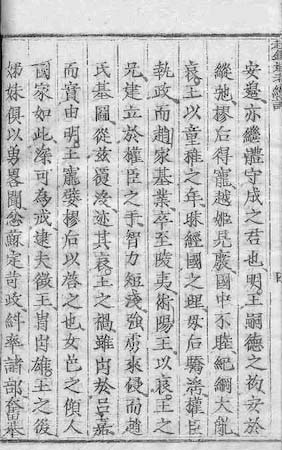 安墓亦繼體守成之君也明王嗣德之初安於
縱弛摎后得寵越姬見廢國中不睦紀綱大亂
哀王以童稚之年昧經國之理母后驕淫權臣
執政而趙家基業卒至陵夷術陽王以哀王之
兄建立於權臣之手智力短淺強虜來侵而趙
氏基圖從兹覆没迹其哀王之禍雖由於呂嘉
而實由明王寵嬖摎后以啓之也女色之傾人
國家如此深可為戒逮夫徵王冑出雄王之後
姊妹俱以勇畧聞忿蘇定苛政糾率諸部奮